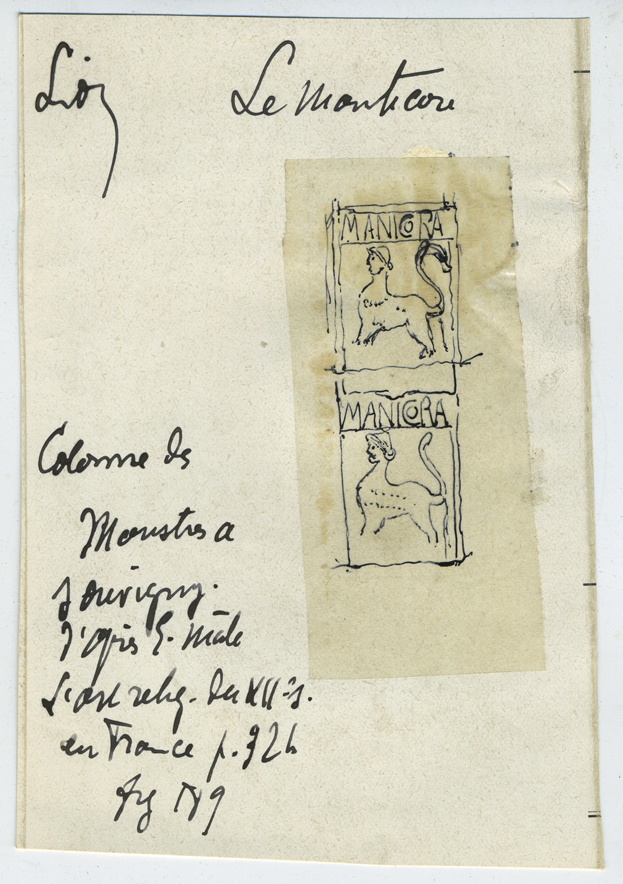 Le Manticore
MANICORA
MANICORA
Colonne des
Monstres a
Souvigny.
d'après E. Mâle
L'art relig. du XIIe s.
en France p.
fig